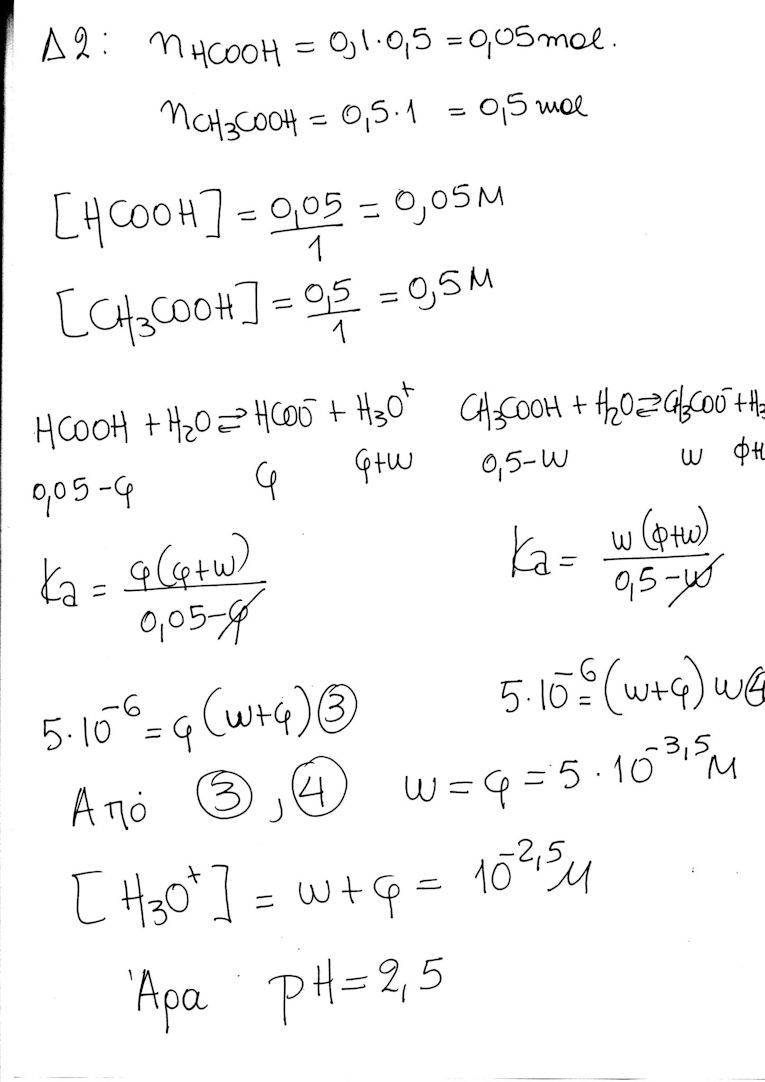 Δ2: nHCOOH = 0,1·0,5 = 0,05mol.
nCH₃COOH = 0,5·1 = 0,5 mol
[HCOOH] = 0,05/1 = 0,05M
[CH₃COOH] = 0,5/1 = 0,5M
HCOOH + H₂O ⇌ HCOO⁻ + H₃O⁺ CH₃COOH + H₂O ⇌ CH₃COO⁻ + H₃
0,05-φ φ φ+w 0,5-w w φ+
Ka = φ(φ+w)/0,05-φ Ka = w(φ+w)/0,5-w
5·10⁻⁶ = φ(w+φ) ③ 5·10⁻⁶ = (w+φ)w ④
Από ③, ④ w = φ = 5·10⁻³,⁵M
[H₃O⁺] = w+φ = 10⁻²,⁵M
Άρα pH = 2,5